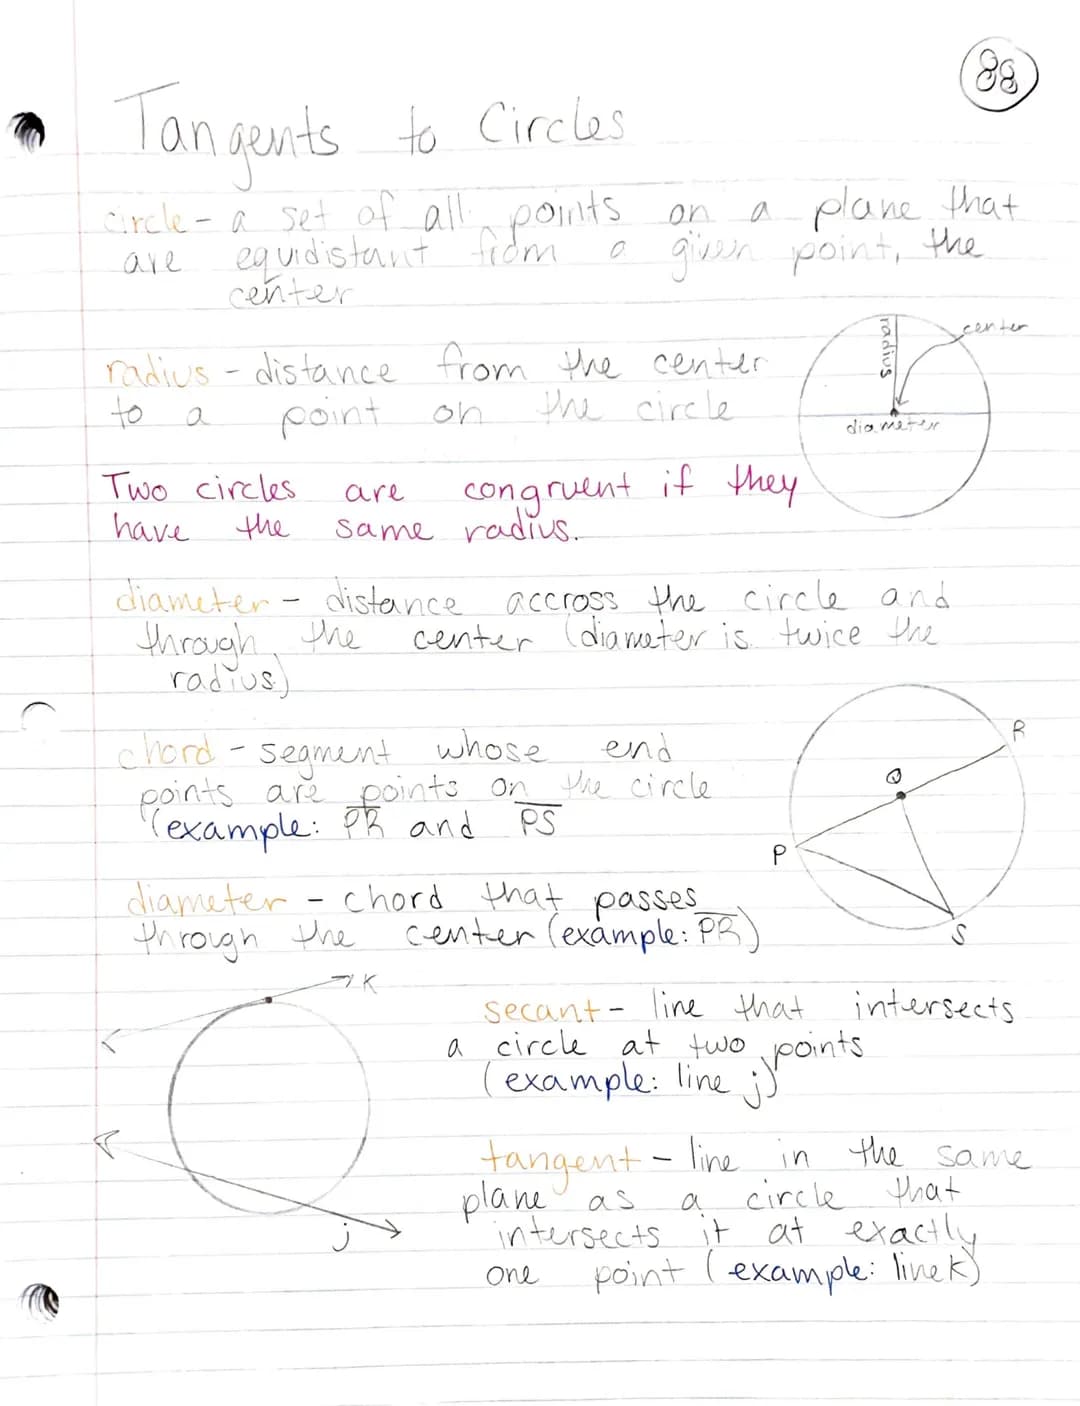 88
Tangents to Circles
circle - a set of all points on a plane that
are equidistant from a given point, the
center
radius
center
diameter
radius - distance from the center
to a point on the circle
Two circles are congruent if they
have the same radius.
diameter - distance accross the circle and
through the center (diameter is twice the
radius)
R
Q
P
S
chord - segment whose end
points are points on the circle
(example: PR and PS
diameter - chord that passes
through the center (example: PR)
K
j
secant - line that intersects
a circle at two points
(example: line j)
tangent - line in the same
plane as a circle that
intersects it at exactly
one point (example: line K)